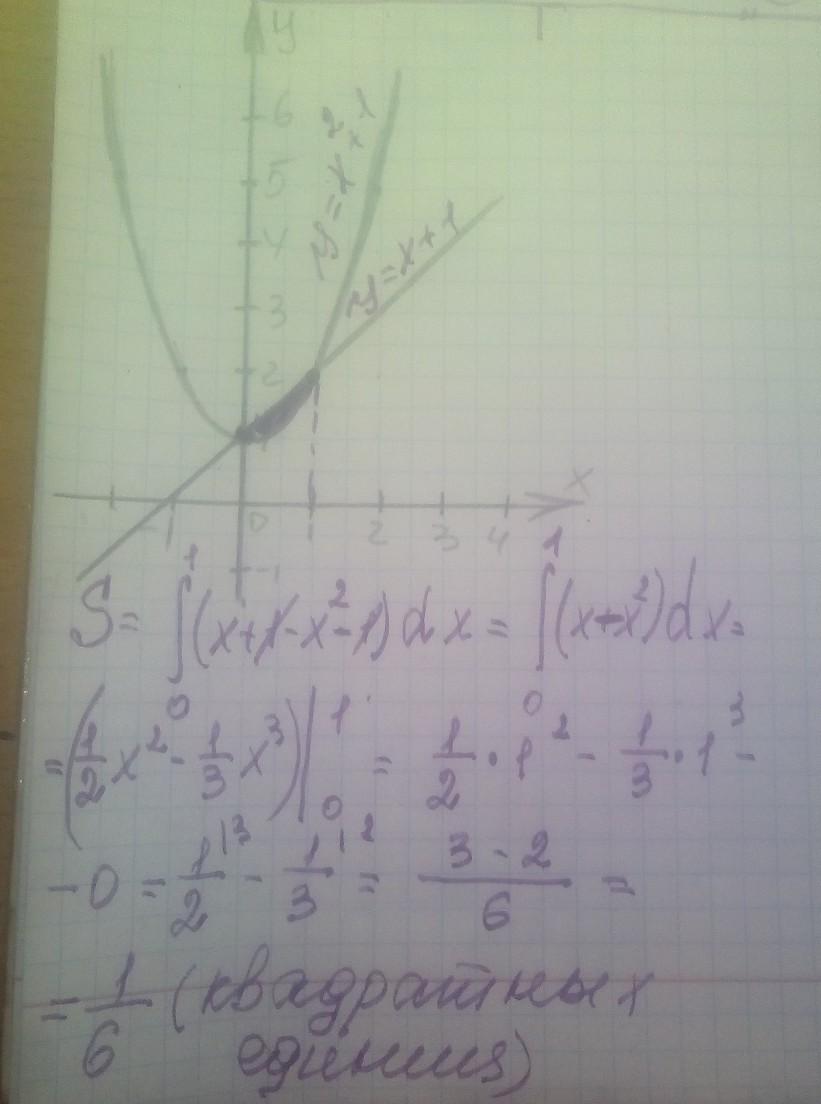 y
6
5
4
3
2
1
y = x² + 1
y = x + 1
x
-1 0 1 2 3 4
-1
S = ∫₀¹ (x + 1 - x² - 1) dx = ∫₀¹ (x + x²) dx =
= (1/2 x² - 1/3 x³) |₀¹ = 1/2 · 1² - 1/3 · 1³ -
- 0 = 1/2 |3 - 1/3 |2 = (3 - 2)/6 =
= 1/6 (квадратных
единиц)